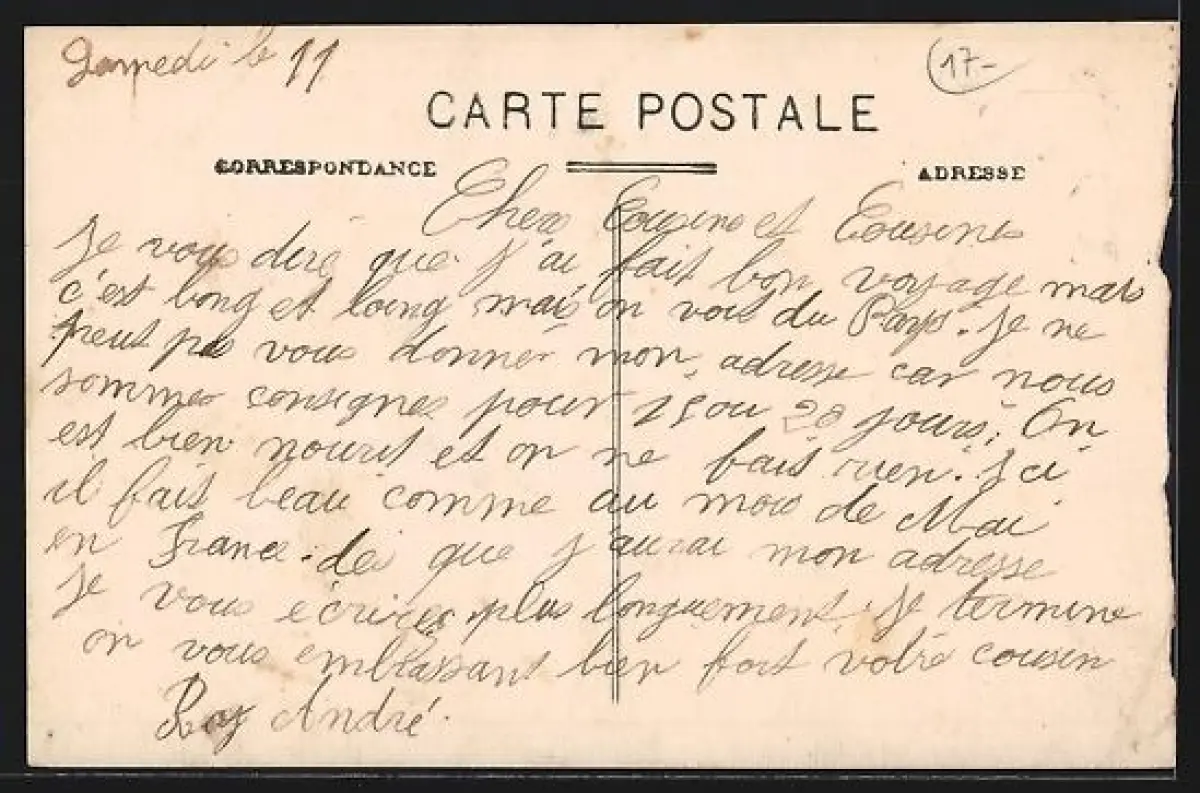 Samedi le 11
17-
CARTE POSTALE
CORRESPONDANCE
ADRESSE
Chers Cousins et Cousines
Je vous dire que j'ai fait bon voyage mais
c'est long et loing mais on voit du Pays. Je ne
peut pas vous donner mon adresse car nous
sommes consignes pour 15 ou 20 jours. On
est bien nourit et on ne fait rien. Ici
il fait beau comme au mois de Mai
en France. des que j'aurai mon adresse
Je vous écrires plus longuement. Je termine
on vous embrassant bien fort votre cousin
Roy André.